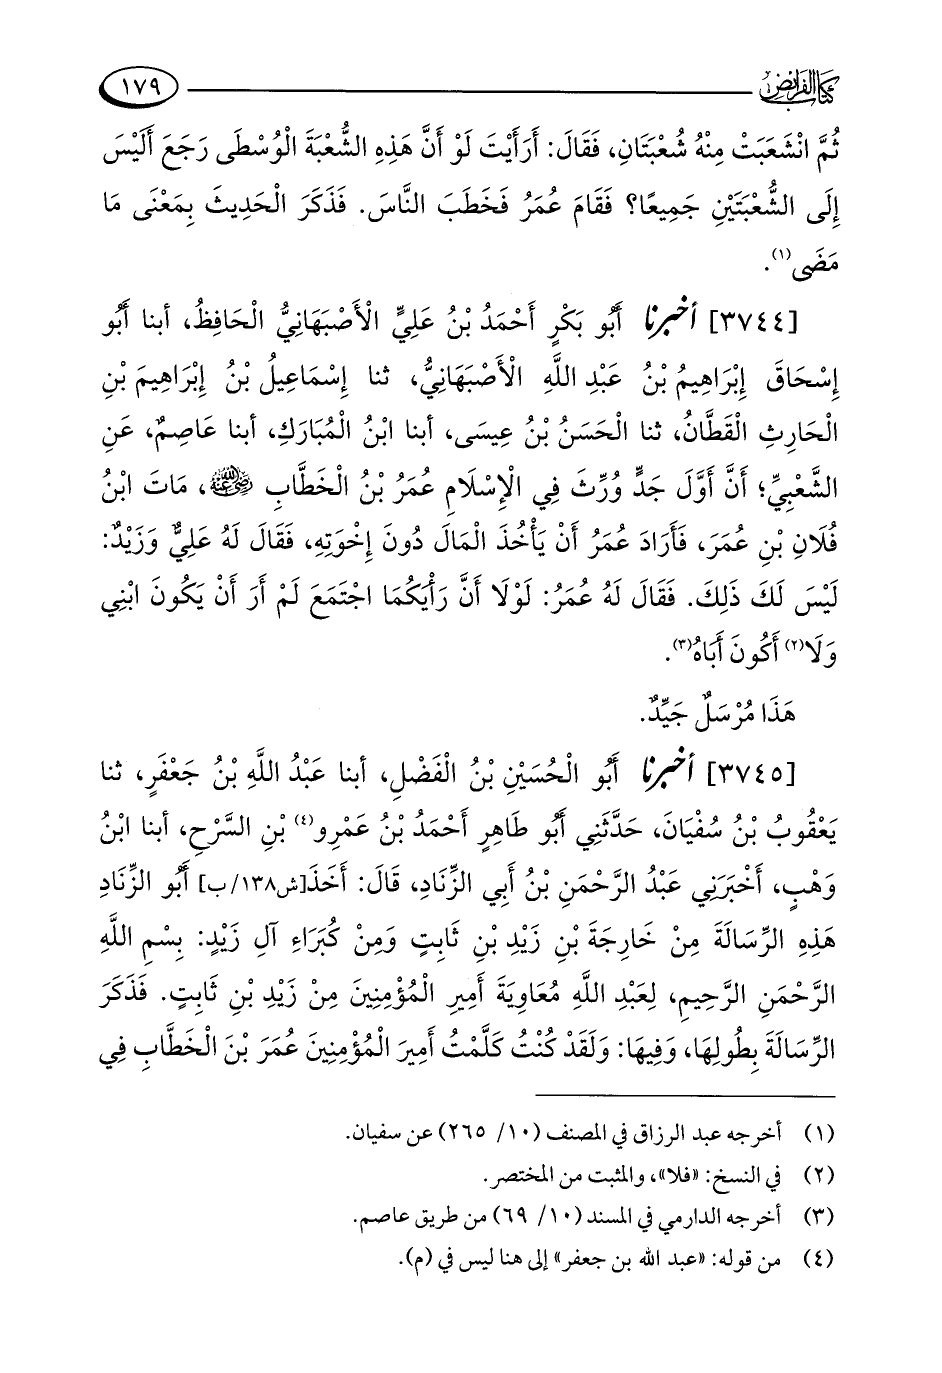 كتاب الفرائض ١٧٩
ثُمَّ انْشَعَبَتْ مِنْهُ شُعْبَتَانِ، فَقَالَ: أَرَأَيْتَ لَوْ أَنَّ هَذِهِ الشُّعْبَةَ الْوُسْطَى رَجَعَ أَلَيْسَ
إِلَى الشُّعْبَتَيْنِ جَمِيعًا؟ فَقَامَ عُمَرُ فَخَطَبَ النَّاسَ. فَذَكَرَ الْحَدِيثَ بِمَعْنَى مَا
مَضَى(١).
[٣٧٤٤] أخبرنا أَبُو بَكْرٍ أَحْمَدُ بْنُ عَلِيٍّ الْأَصْبَهَانِيُّ الْحَافِظُ، أبنا أَبُو
إِسْحَاقَ إِبْرَاهِيمُ بْنُ عَبْدِ اللَّهِ الْأَصْبَهَانِيُّ، ثنا إِسْمَاعِيلُ بْنُ إِبْرَاهِيمَ بْنِ
الْحَارِثِ الْقَطَّانُ، ثنا الْحَسَنُ بْنُ عِيسَى، أبنا ابْنُ الْمُبَارَكِ، أبنا عَاصِمٌ، عَنِ
الشَّعْبِيِّ؛ أَنَّ أَوَّلَ جَدٍّ وُرِّثَ فِي الْإِسْلَامِ عُمَرُ بْنُ الْخَطَّابِ رضي الله عنه، مَاتَ ابْنُ
فُلَانِ بْنِ عُمَرَ، فَأَرَادَ عُمَرُ أَنْ يَأْخُذَ الْمَالَ دُونَ إِخْوَتِهِ، فَقَالَ لَهُ عَلِيٌّ وَزَيْدٌ:
لَيْسَ لَكَ ذَلِكَ. فَقَالَ لَهُ عُمَرُ: لَوْلَا أَنَّ رَأْيَكُمَا اجْتَمَعَ لَمْ أَرَ أَنْ يَكُونَ ابْنِي
وَلَا(٢) أَكُونَ أَبَاهُ(٣).
هَذَا مُرْسَلٌ جَيِّدٌ.
[٣٧٤٥] أخبرنا أَبُو الْحُسَيْنِ بْنُ الْفَضْلِ، أبنا عَبْدُ اللَّهِ بْنُ جَعْفَرٍ، ثنا
يَعْقُوبُ بْنُ سُفْيَانَ، حَدَّثَنِي أَبُو طَاهِرٍ أَحْمَدُ بْنُ عَمْرِو(٤) بْنِ السَّرْحِ، أبنا ابْنُ
وَهْبٍ، أَخْبَرَنِي عَبْدُ الرَّحْمَنِ بْنُ أَبِي الزِّنَادِ، قَالَ: أَخَذَ[ش١٣٨/ب] أَبُو الزِّنَادِ
هَذِهِ الرِّسَالَةَ مِنْ خَارِجَةَ بْنِ زَيْدِ بْنِ ثَابِتٍ وَمِنْ كُبَرَاءِ آلِ زَيْدٍ: بِسْمِ اللَّهِ
الرَّحْمَنِ الرَّحِيمِ، لِعَبْدِ اللَّهِ مُعَاوِيَةَ أَمِيرِ الْمُؤْمِنِينَ مِنْ زَيْدِ بْنِ ثَابِتٍ. فَذَكَرَ
الرِّسَالَةَ بِطُولِهَا، وَفِيهَا: وَلَقَدْ كُنْتُ كَلَّمْتُ أَمِيرَ الْمُؤْمِنِينَ عُمَرَ بْنَ الْخَطَّابِ فِي
(١) أخرجه عبد الرزاق في المصنف (١٠/ ٢٦٥) عن سفيان.
(٢) في النسخ: «فلا»، والمثبت من المختصر.
(٣) أخرجه الدارمي في المسند (١٠/ ٦٩) من طريق عاصم.
(٤) من قوله: «عبد الله بن جعفر» إلى هنا ليس في (م).